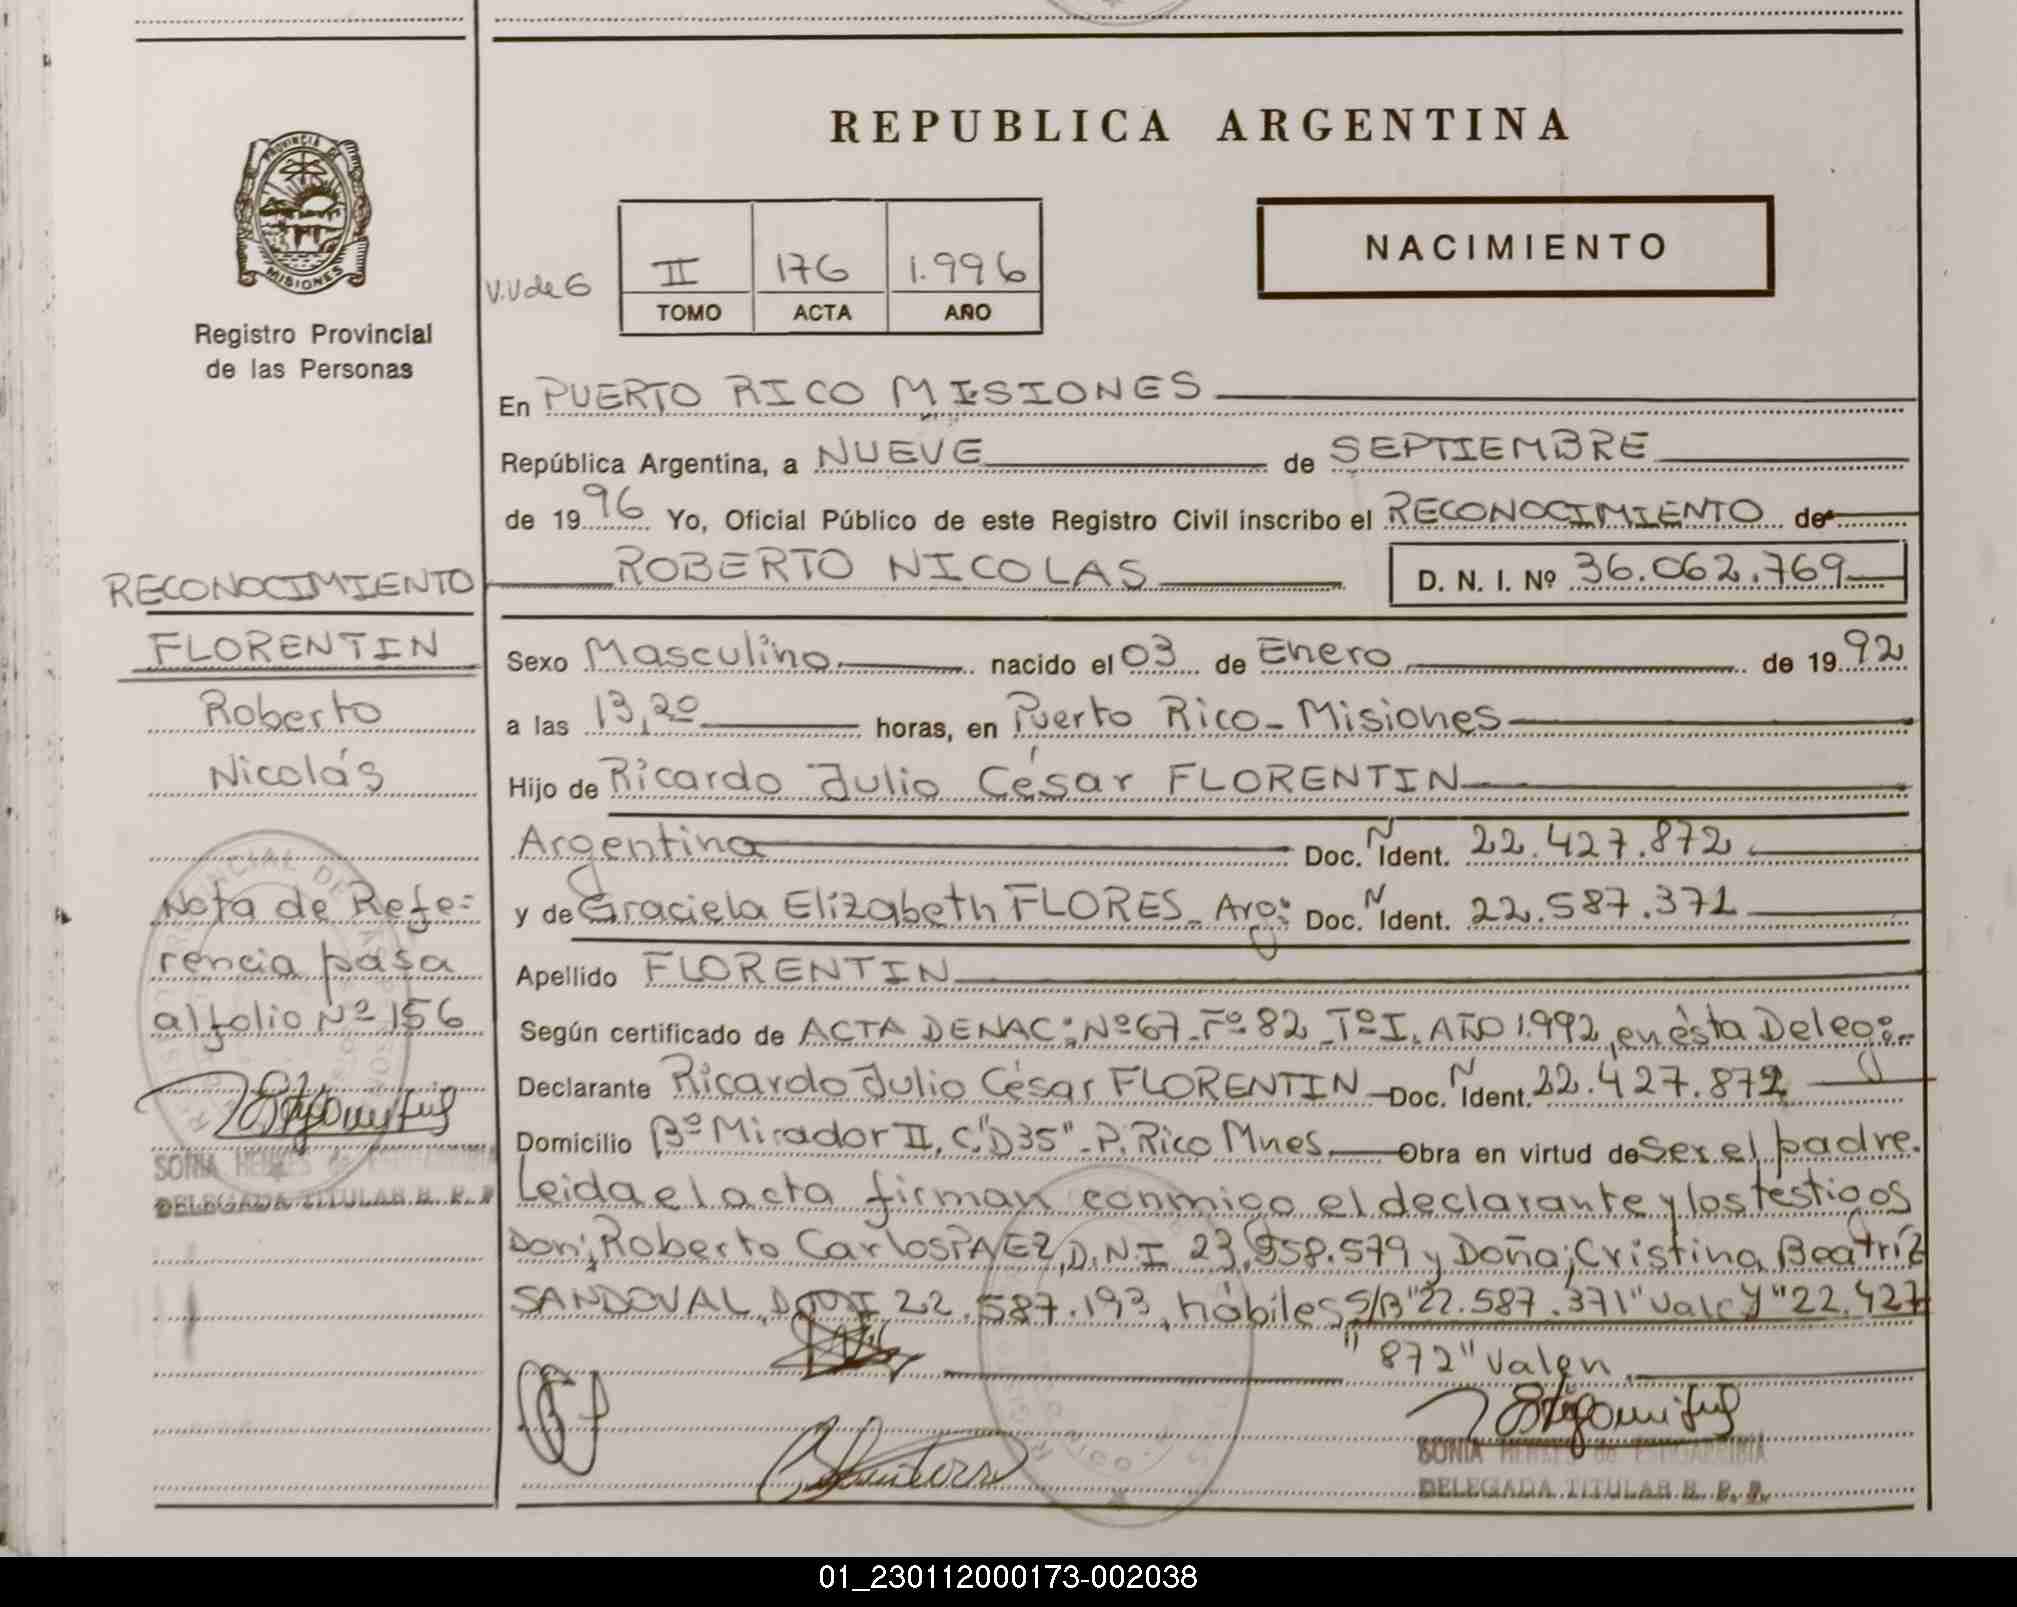 REPUBLICA ARGENTINA
PROVINCIA DE
MISIONES
Registro Provincial
de las Personas
V.V de 6
II 176 1.996
TOMO ACTA AÑO
NACIMIENTO
En PUERTO RICO MISIONES
República Argentina, a NUEVE de SEPTIEMBRE
de 1996 Yo, Oficial Público de este Registro Civil inscribo el RECONOCIMIENTO de
ROBERTO NICOLAS D. N. I. Nº 36.062.769
Sexo Masculino nacido el 03 de Enero de 1992
a las 13,20 horas, en Puerto Rico - Misiones
Hijo de Ricardo Julio César FLORENTIN
Argentina Doc. N Ident. 22.427.872
y de Graciela Elizabeth FLORES - Arg: Doc. N Ident. 22.587.371
Apellido FLORENTIN
Según certificado de ACTA DE NAC: Nº 67 - Fº 82 - Tº I. AÑO 1.992, en ésta Deleg:-
Declarante Ricardo Julio César FLORENTIN - Doc. N Ident. 22.427.872
Domicilio Bº Mirador II, C."D35" - P. Rico Mnes Obra en virtud de ser el padre.
Leida el acta firman conmigo el declarante y los testigos
Don; Roberto Carlos PAEZ, D.N.I 23.958.579 y Doña; Cristina Beatríz
SANDOVAL, DNI 22.587.193, hábiles S/B "22.587.371" Vale y "22.427
"872" Valen
SONIA
DELEGADA TITULAR R. P. P.
RECONOCIMIENTO
FLORENTIN
Roberto
Nicolás
Nota de Refe=
rencia pasa
al folio Nº 156
SONIA
DELEGADA TITULAR R. P. P.
01_230112000173-002038